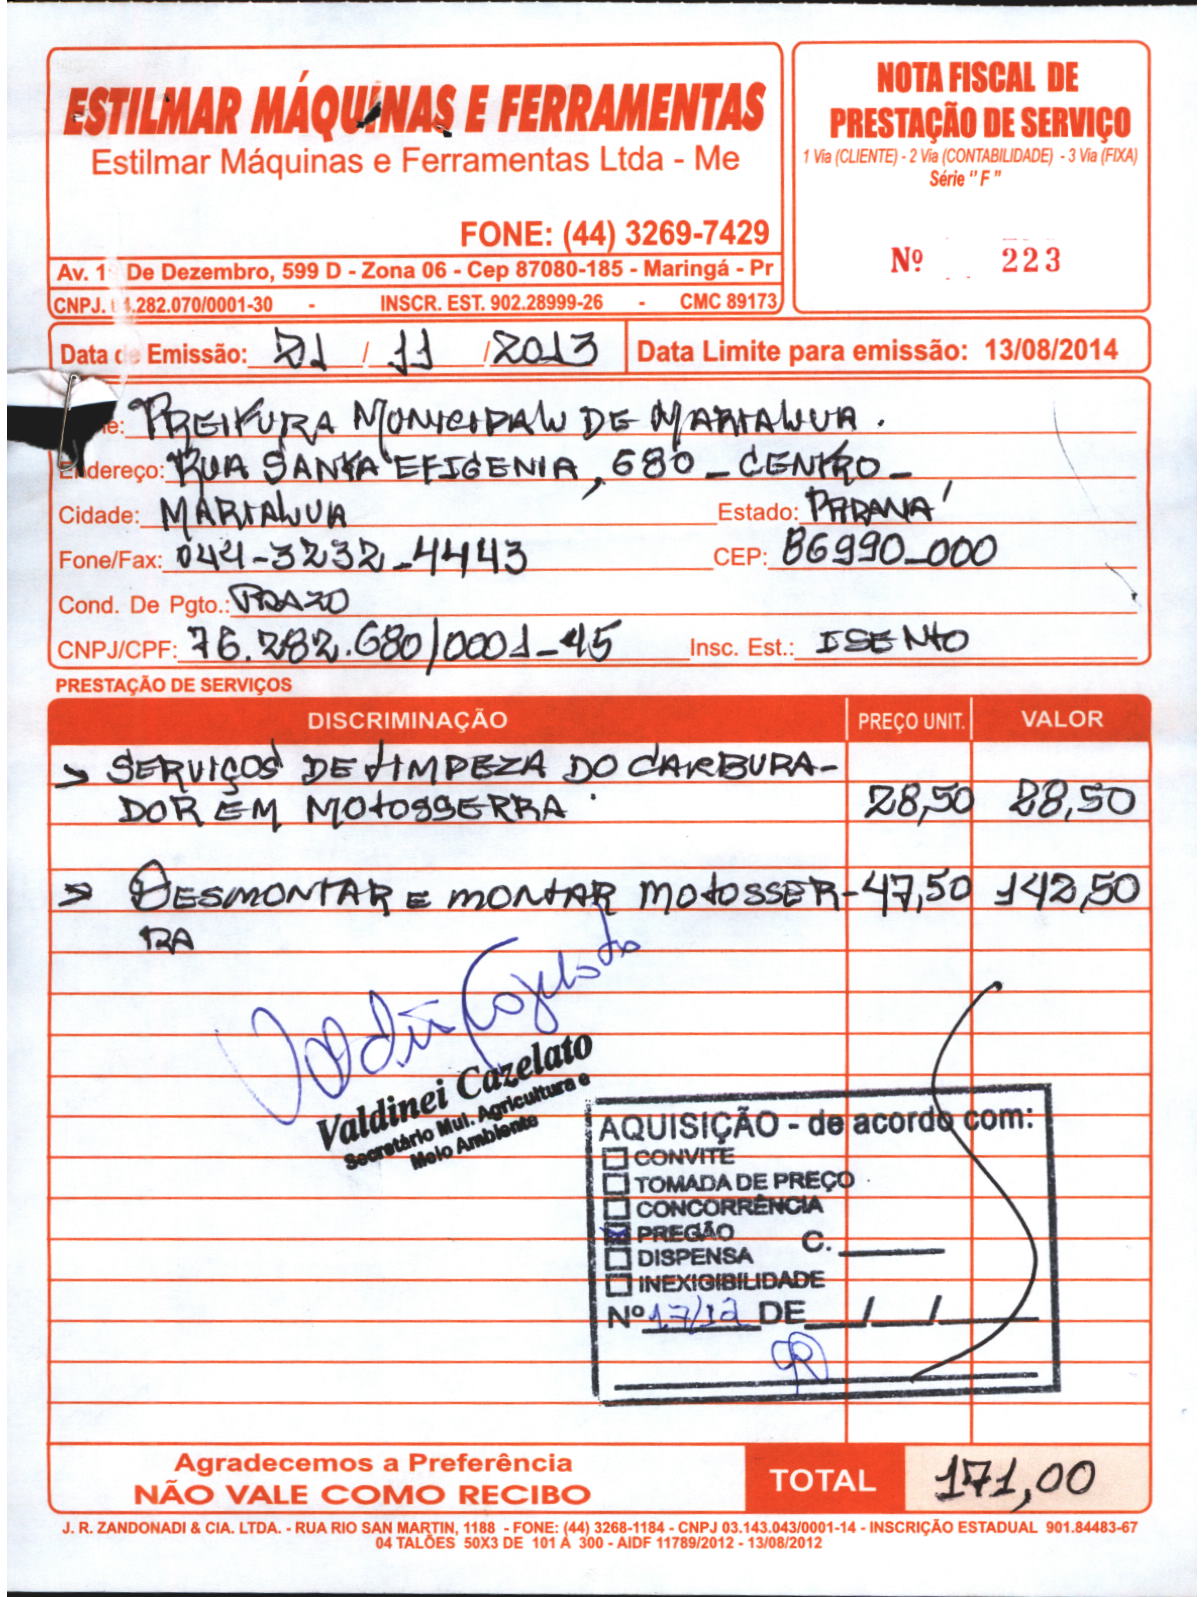 ESTILMAR MÁQUINAS E FERRAMENTAS
Estilmar Máquinas e Ferramentas Ltda - Me
FONE: (44) 3269-7429
Av. 1º De Dezembro, 599 D - Zona 06 - Cep 87080-185 - Maringá - Pr
CNPJ. 04.282.070/0001-30 - INSCR. EST. 902.28999-26 - CMC 89173
NOTA FISCAL DE
PRESTAÇÃO DE SERVIÇO
1 Via (CLIENTE) - 2 Via (CONTABILIDADE) - 3 Via (FIXA)
Série "F"
Nº 223
Data de Emissão: 21 / 11 / 2013 Data Limite para emissão: 13/08/2014
PREIFURA MUNICIPAL DE MARIALVA.
Endereço: RUA SANTA EFIGENIA, 680 - CENTRO -
Cidade: MARIALVA Estado: PARANA'
Fone/Fax: 044-3232-4443 CEP: 86990-000
Cond. De Pgto.: PRAZO
CNPJ/CPF: 76.282.680/0001-45 Insc. Est.: ISENTO
PRESTAÇÃO DE SERVIÇOS
DISCRIMINAÇÃO PREÇO UNIT. VALOR
> SERVIÇOS DE LIMPEZA DO CARBURA-
DOR EM MOTOSSERRA. 28,50 28,50
> DESMONTAR E MONTAR MOTOSSER- 47,50 142,50
RA
Valdinei Cazelato
Valdinei Cazelato
Secretário Mul. Agricultura e
Meio Ambiente
AQUISIÇÃO - de acordo com:
CONVITE
TOMADA DE PREÇO
CONCORRÊNCIA
PREGÃO
C.
DISPENSA
INEXIGIBILIDADE
Nº 17/12 DE / /
Agradecemos a Preferência
NÃO VALE COMO RECIBO
TOTAL 171,00
J. R. ZANDONADI & CIA. LTDA. - RUA RIO SAN MARTIN, 1188 - FONE: (44) 3268-1184 - CNPJ 03.143.043/0001-14 - INSCRIÇÃO ESTADUAL 901.84483-67
04 TALÕES 50X3 DE 101 A 300 - AIDF 11789/2012 - 13/08/2012